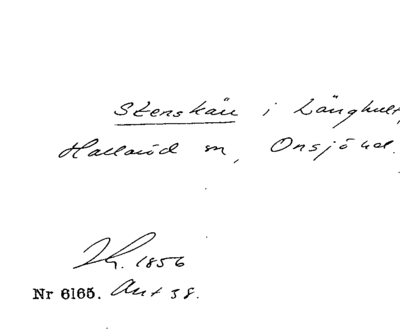 Stenskäu i Långhult,
Hallaröd sn, Onsjö hd.
Th. 1856
Nr 6165. Ant 38.